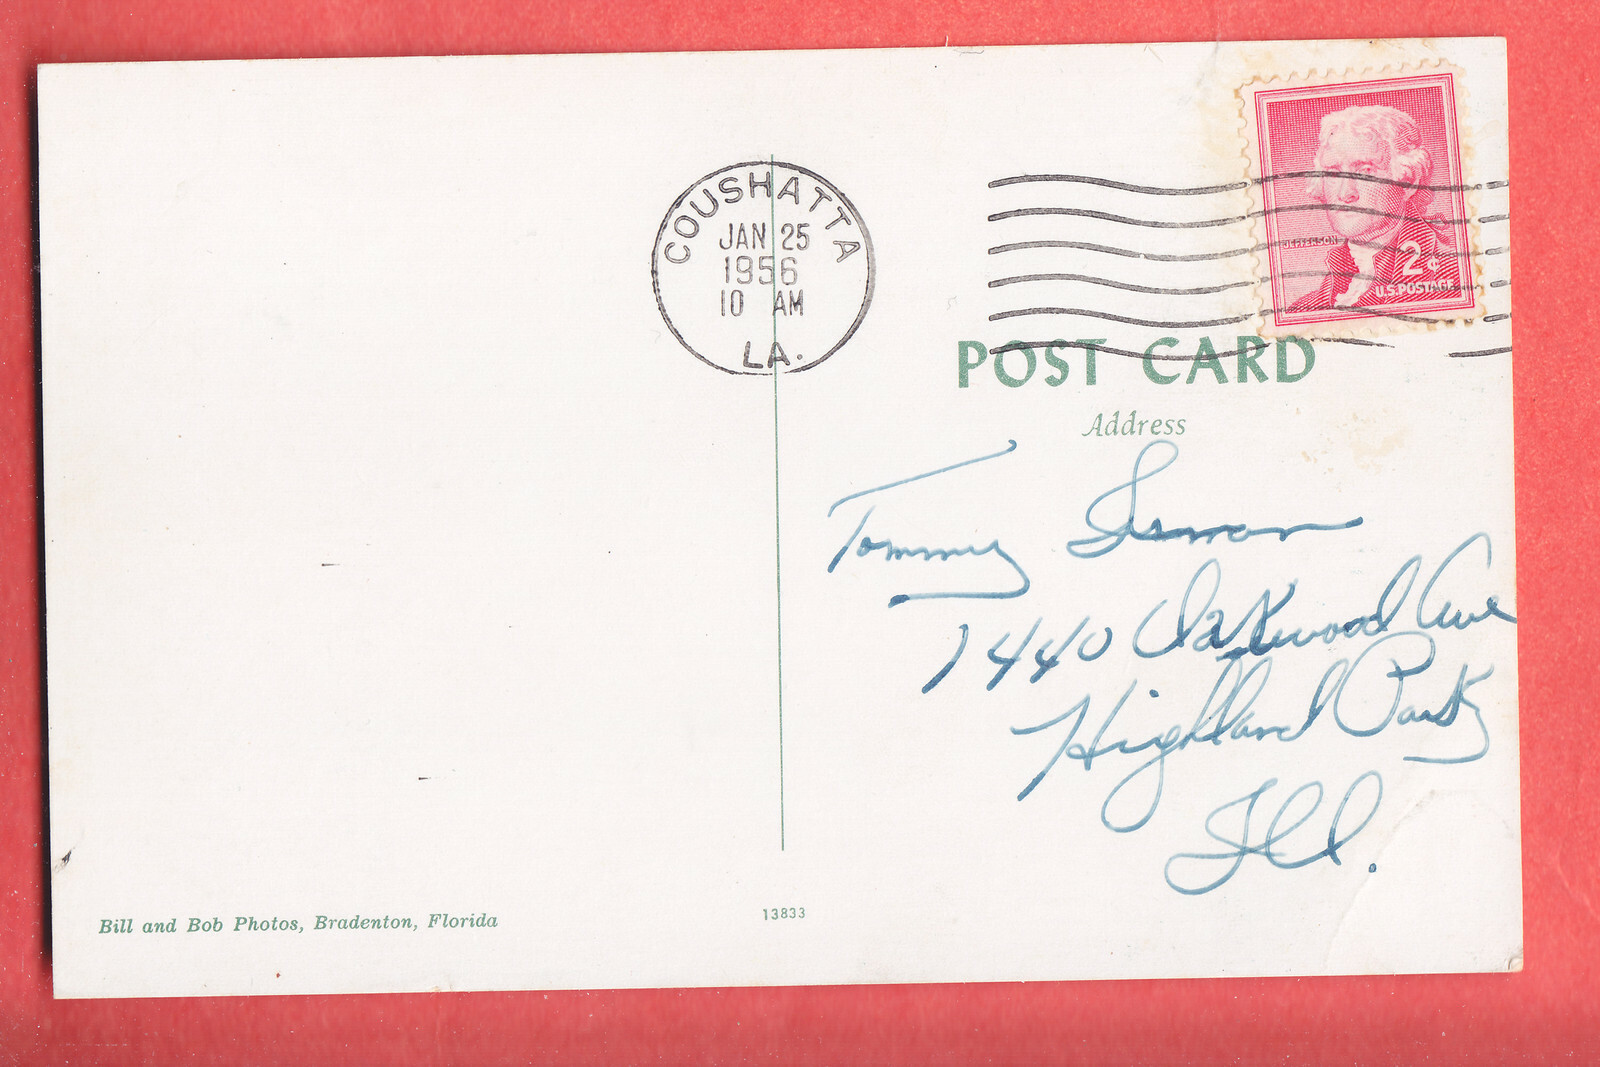 COUSHATTA
JAN 25
1956
10 AM
LA.
JEFFERSON
2¢
U.S. POSTAGE
POST CARD
Address
Tommy
1440 Oakwood Ave
Highland Park
Ill.
Bill and Bob Photos, Bradenton, Florida
13833